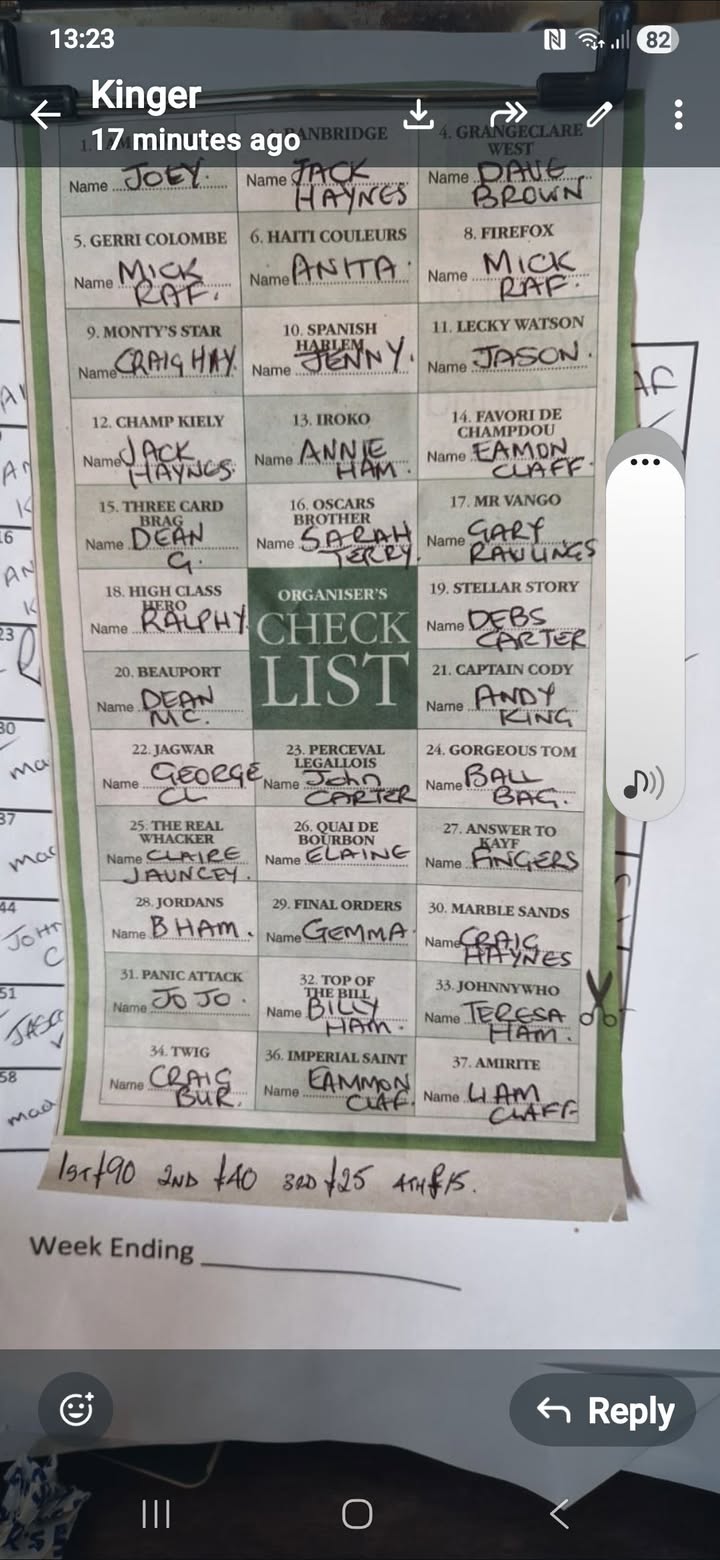 13:23
82
Kinger
17 minutes ago
1.
BANBRIDGE
4. GRANGECLARE
WEST
Name JOEY.
Name JACK
HAYNES
Name DAVE
BROWN
5. GERRI COLOMBE
6. HAITI COULEURS
8. FIREFOX
Name MICK
RAF.
Name ANITA
Name MICK
RAF.
9. MONTY'S STAR
10. SPANISH
HARLEM
11. LECKY WATSON
Name CRAIG HAY
Name JENNY.
Name JASON.
12. CHAMP KIELY
13. IROKO
14. FAVORI DE
CHAMPDOU
Name JACK
HAYNES
Name ANNIE
HAM.
Name EAMON
CLAFF.
15. THREE CARD
BRAG
16. OSCARS
BROTHER
17. MR VANGO
Name DEAN
G.
Name SARAH
TERRY.
Name GARY
RAWLINGS
18. HIGH CLASS
HERO
ORGANISER'S
CHECK
LIST
19. STELLAR STORY
Name RALPHY
Name DEBS
CARTER
20. BEAUPORT
21. CAPTAIN CODY
Name DEAN
MC.
Name ANDY
KING
22. JAGWAR
23. PERCEVAL
LEGALLOIS
24. GORGEOUS TOM
Name GEORGE
CL
Name John
CARTER
Name BALL
BAG.
25. THE REAL
WHACKER
26. QUAI DE
BOURBON
27. ANSWER TO
KAYF
Name CLAIRE
JAUNCEY.
Name ELAINE
Name FINGERS
28. JORDANS
29. FINAL ORDERS
30. MARBLE SANDS
Name B HAM.
Name GEMMA
Name CRAIG
HAYNES
31. PANIC ATTACK
32. TOP OF
THE BILL
33. JOHNNYWHO
Name JO JO.
Name BILLY
HAM.
Name TERESA
HAM.
34. TWIG
36. IMPERIAL SAINT
37. AMIRITE
Name CRAIG
BUR.
Name EAMMON
CLAF.
Name LIAM
CLAFF
1ST £90 2ND £40 3RD £25 4TH £15.
Week Ending
Reply